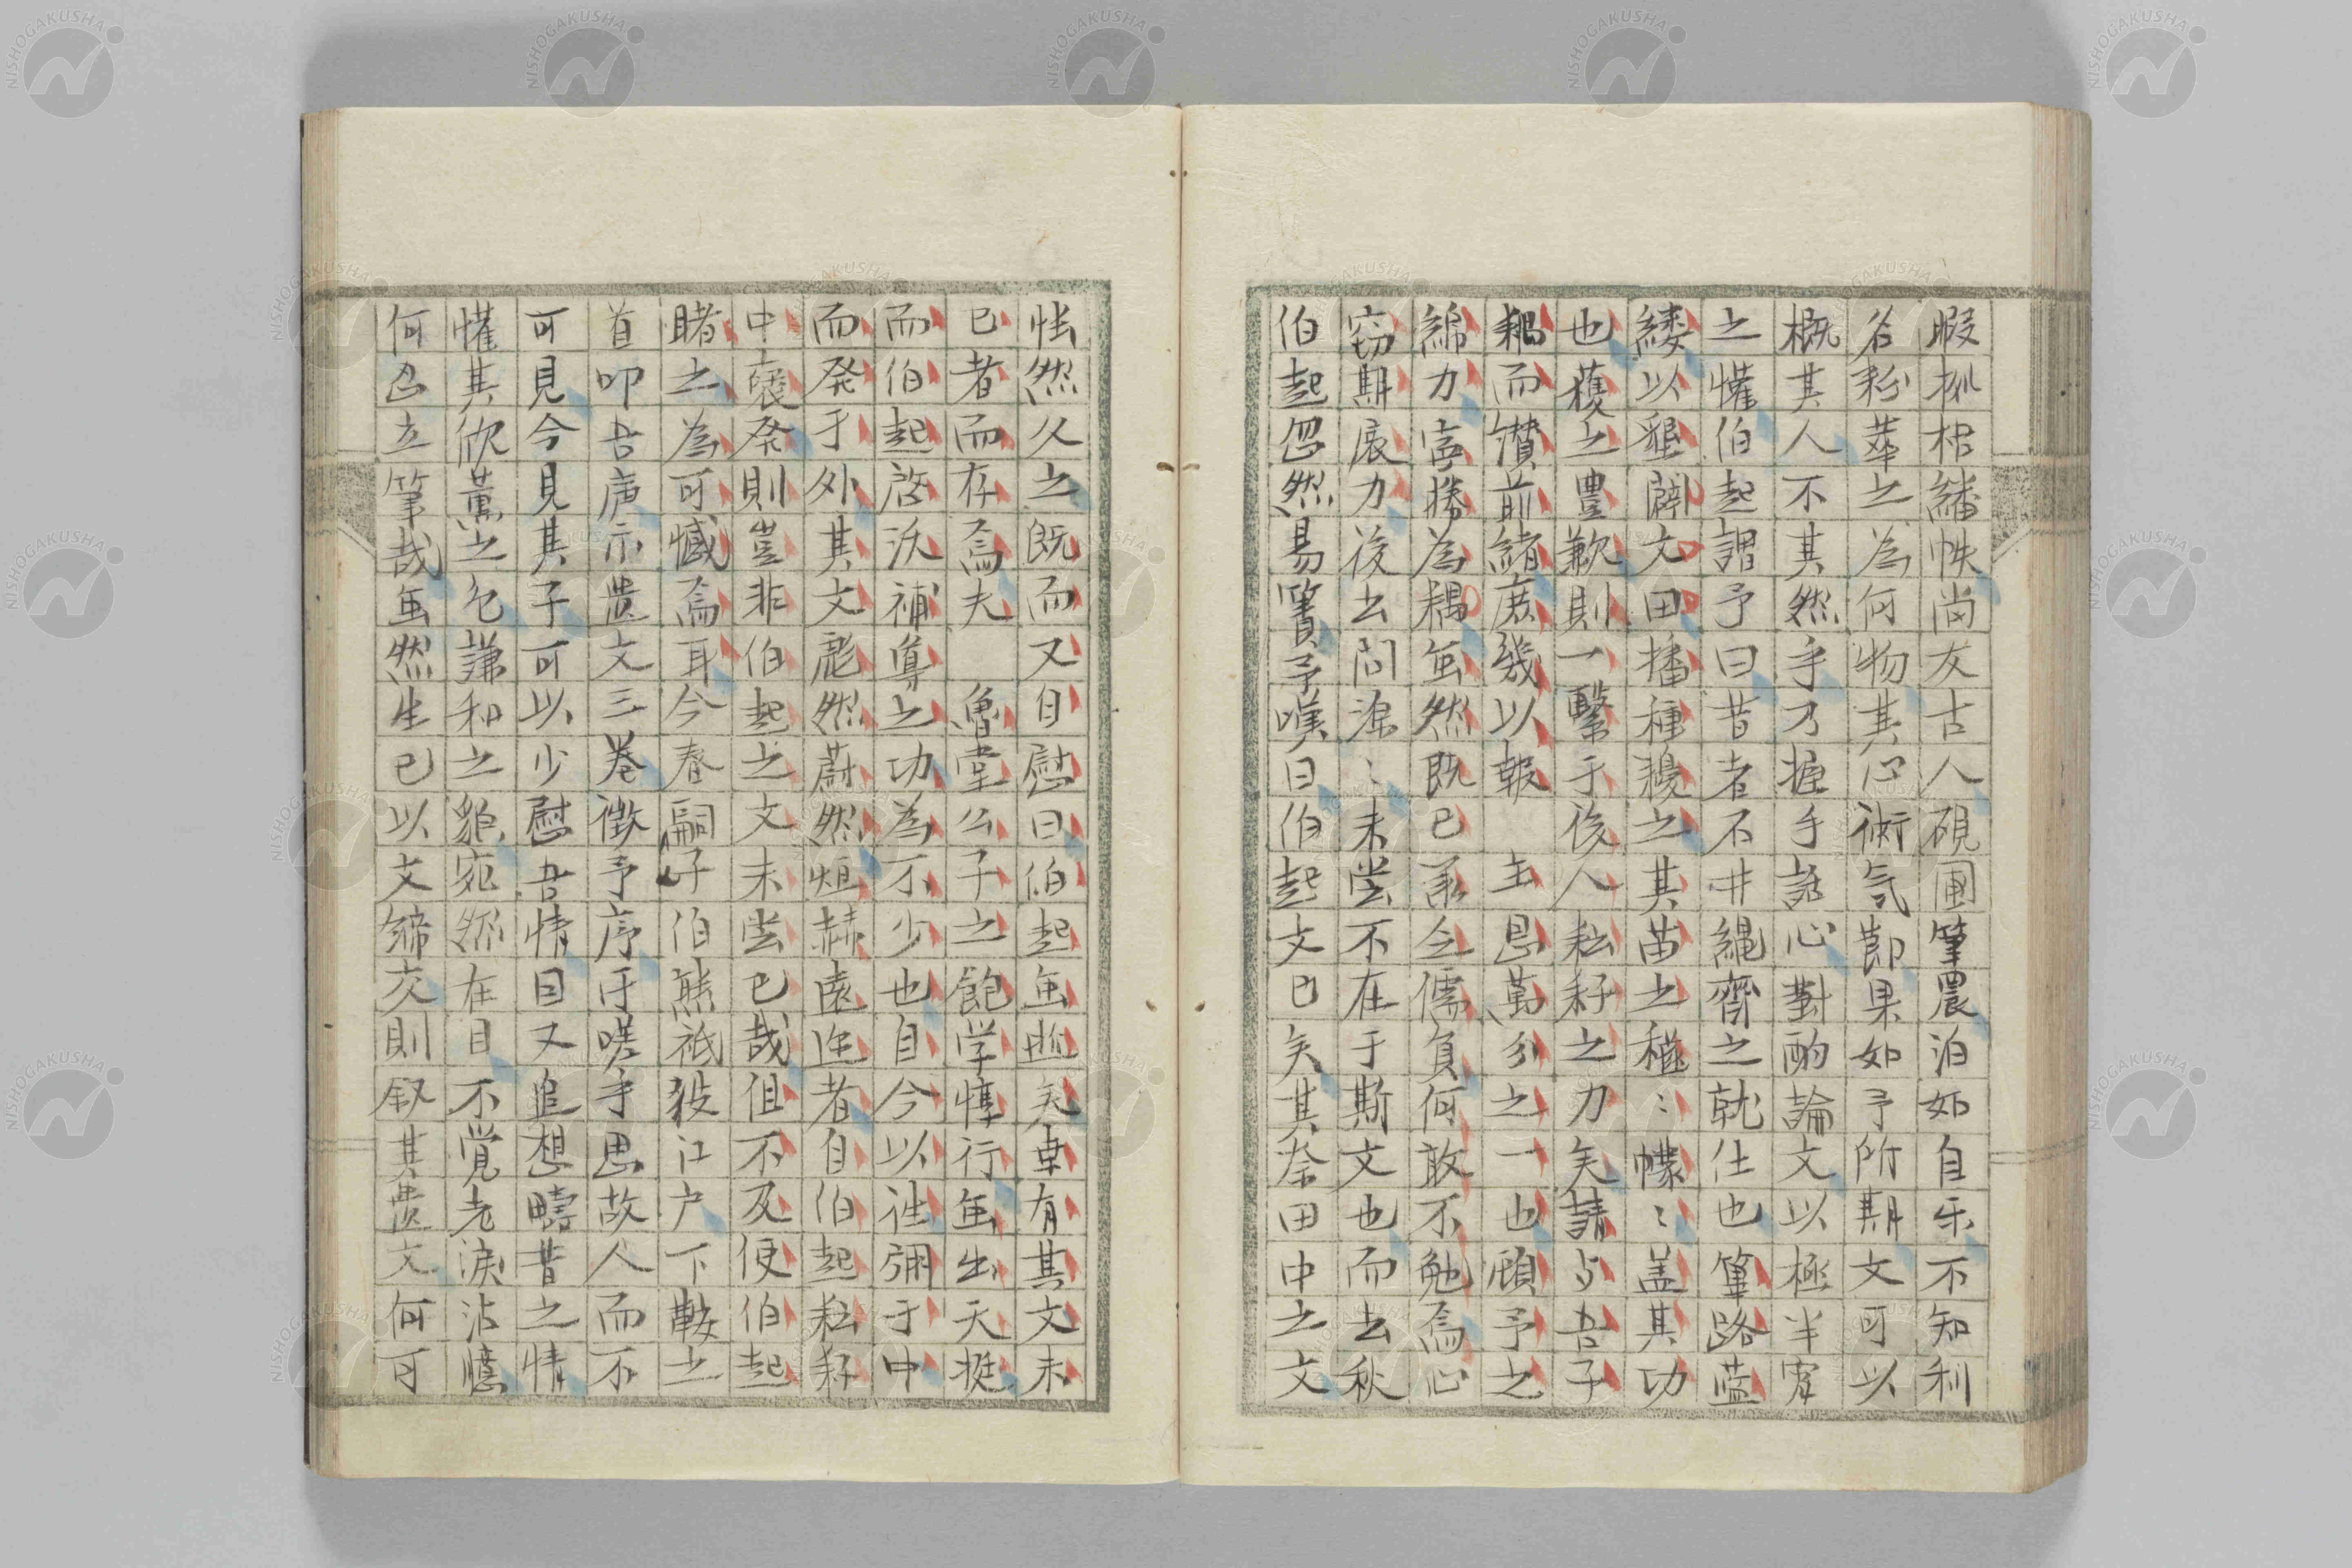 暇枕棺繙帙尚友古人硯圃筆農泊如自乐不知利
名粉華之為何物其心術気節果如予所期文可以
概其人不其然乎乃握手話心對酌論文以極半宵
之懽伯起謂予曰昔者不井縄齊之就仕也篳路藍
縷以墾闢文田播種耰之其苗之穟〻幪〻盖其功
也穫之豊歉則一繫于後人耘耔之力矣請与吾子
耦而欑前緒庶幾以報　主恩萬分之一也頋予之
綿力寧勝為耦虽然既已承乏儒負何敢不勉焉心
窃期展力後去問渠〻未尝不在于斯文也而去秋
伯起忽然易簀予嘆曰伯起文已矣其奈田中之文
悵然久之既而又自慰曰伯起虽逝矣幸有其文未
已者而存焉夫　魯堂公子之飽学惇行虽出天挺
而伯起啓沃補導之功為不少也自今以往弸于中
而発于外其文彪然蔚然烜赫遠迩者自伯起耘耔
中襃発則豈非伯起之文未尝已哉但不及使伯起
睹之為可憾焉耳今春嗣子伯熊祗役江户下鞍之
首叩吉庿示遺文三巻徴予序于嗟乎思故人而不
可見今見其子可以少慰吾情目又追想疇昔之情
懽其欣薫之色謙和之貌宛然在目不覚老淚沾臆
何忍立筆哉虽然生已以文締交則叙其遺文何可